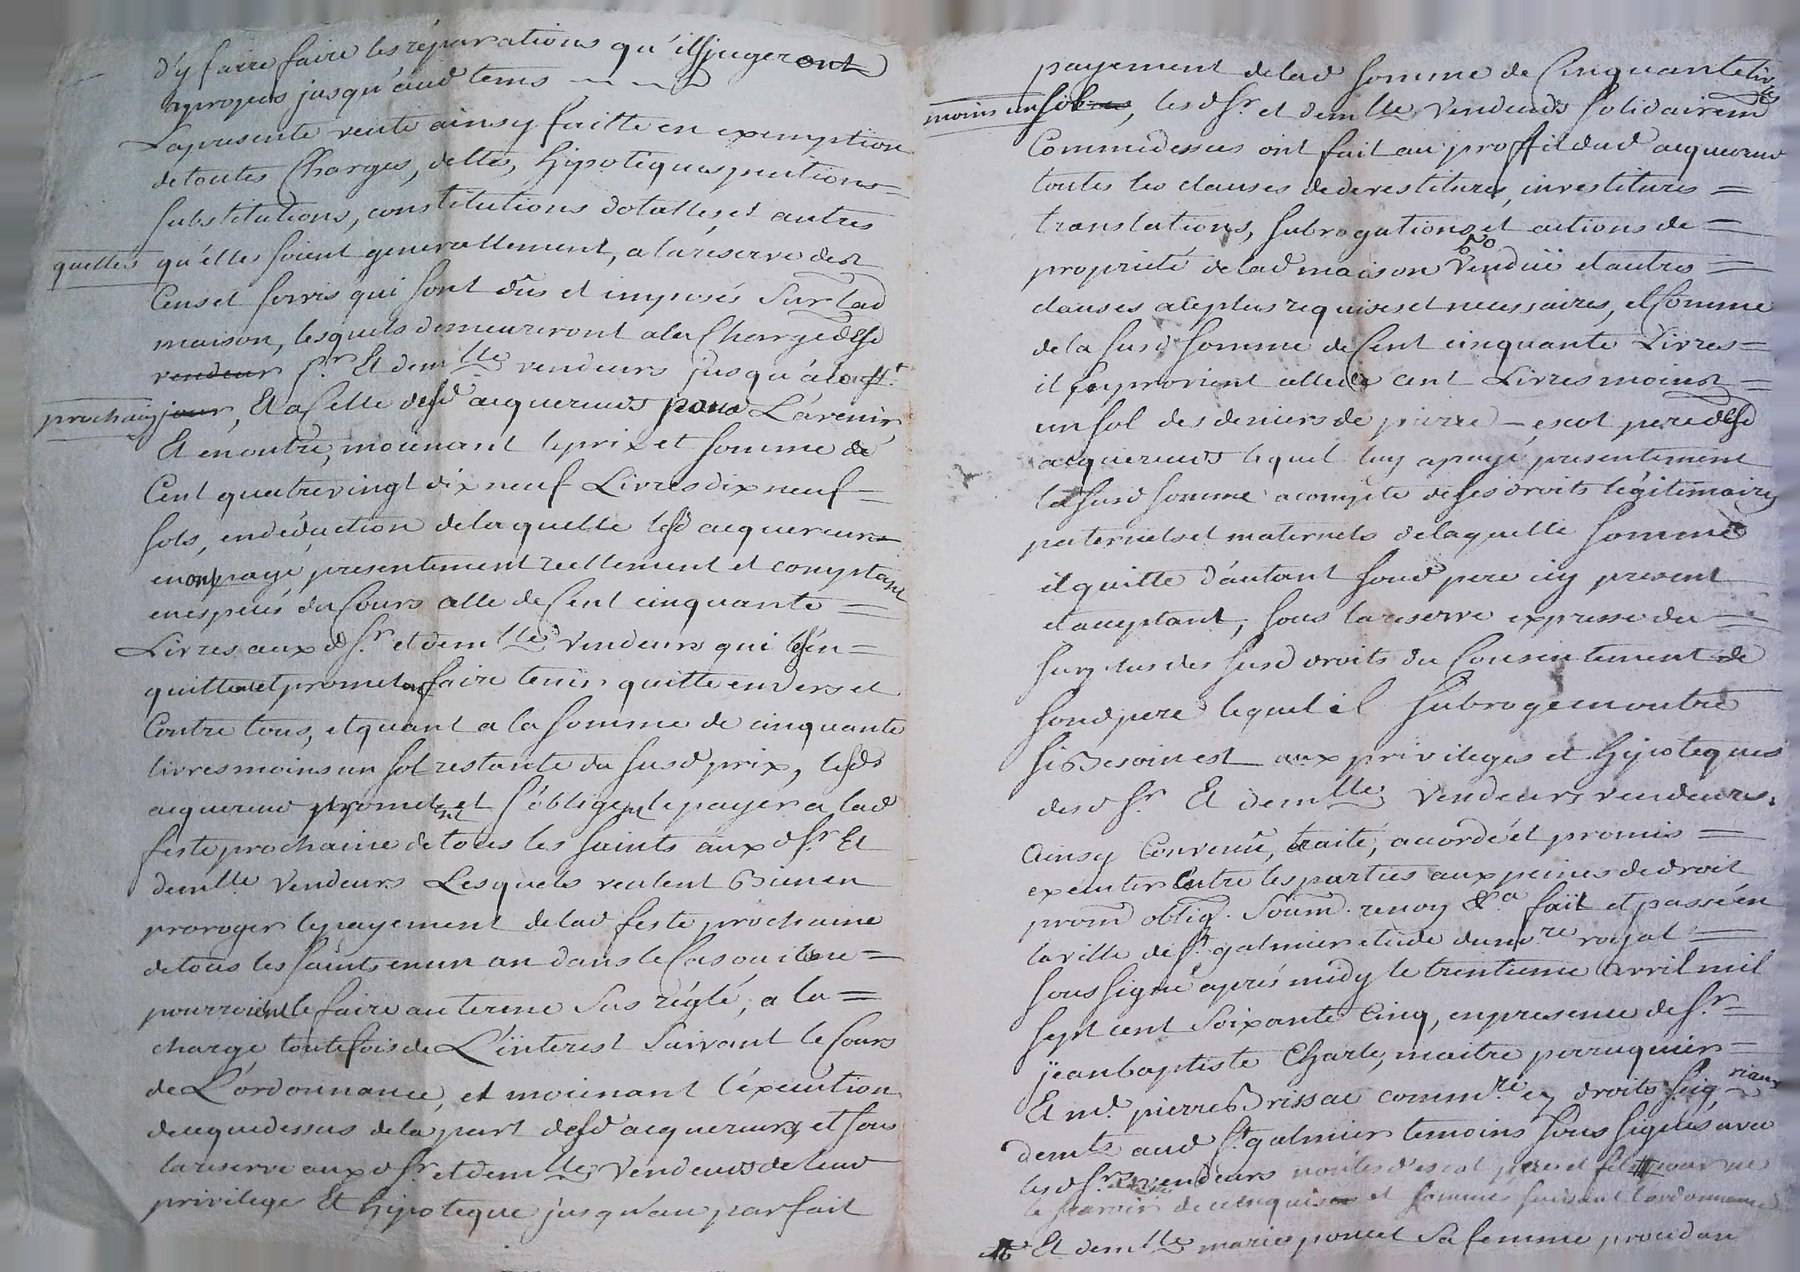 d'y faire faire les réparations qu'ils jugeront
apropos jusqu'aud tems
La presente vente ainsy faitte en exemption
de toutes Charges, dettes, hipoteques
substitutions, constitutions dotalles, et autres
quelles qu'elles soient generallement, a la reserve des
Cens et servis qui sont dûs et imposés sur lad
maison, lesquels demeureront a la Charge desd
vendeur sr. Et demlle vendeurs jusqu'à
prochain jour, Et a Celle desd acquereurs pour L'avenir
Et en outre, moienant le prix et somme de
Cent quatre vingt dix neuf Livres dix neuf
sols, en déduction de laquelle lesd acquereurs
en ont payé presentement reellement et comptant
en especes du Cours celle de Cent cinquante
Livres aux d sr. et demlle vendeurs qui les en
quittent et promettent faire tenir quitte envers et
Contre tous, et quant a la somme de cinquante
livres moins un sol restante du susd prix, lesds
acquereurs promettent et s'obligent le payer a lad
feste prochaine de tous les saints aux d sr. Et
demlle vendeurs Lesquels veulent Bien en
proroger le payement de lad feste prochaine
de tous les saints en un an dans le Cas ou ils ne
pourroient le faire au terme sus réglé, a la
charge toutefois de L'interest suivant le Cours
de L'ordonnance, et moienant l'éxecution
de ce que dessus de la part desd acquereurs et sous
la reserve aux d sr. et demlle vendeurs de leur
privilege Et hipoteque jusqu'au parfait
payement de lad somme de Cinquante livres
moins un sol, les d sr. et demlle vendeurs solidairemt
Comme dessus ont fait au proffit dud acquereur
toutes les clauses de devestitures, investitures
translations, subrogations et actions de
propriété de lad maison vendüe et autres
clauses a ce plus requises et necessaires, et Comme
de la susd somme de Cent cinquante Livres
il en provient celle de cent Livres moins
un sol des deniers de pierre escot pere desd
acquereurs lequel luy a payé presentement
la susd somme a compte de ses droits légitimaires
paternels et maternels de laquelle somme
il quitte d'autant sond pere icy present
et acceptant, sous la reserve expresse du
surplus des susd droits du Consentement de
sond pere lequel il subroge en outre
si Besoin est aux privileges et hipoteques
des d sr Et demlle vendeurs vendeurs.
Ainsy Convenu, traité, accordé et promis
executer Entre les parties aux peines de droit
prom obliq. soum. renon &a fait et passé en
la ville de st. galmier etude du nore royal
sous signé aprés midy le trentieme avril mil
sept cent soixante Cinq, en presence de sr.
jean baptiste Charle, maitre perruquier
Et md. pierre Brissac commre ez droits seigneuriaux
demts aud st. galmier temoins sous signés avec
les d srs vendeurs non les d escot pere et fils pour ne
le scavoir de ce enquis et sommes suivant l'ordonnance
Et demlle marie poncet sa femme procedan